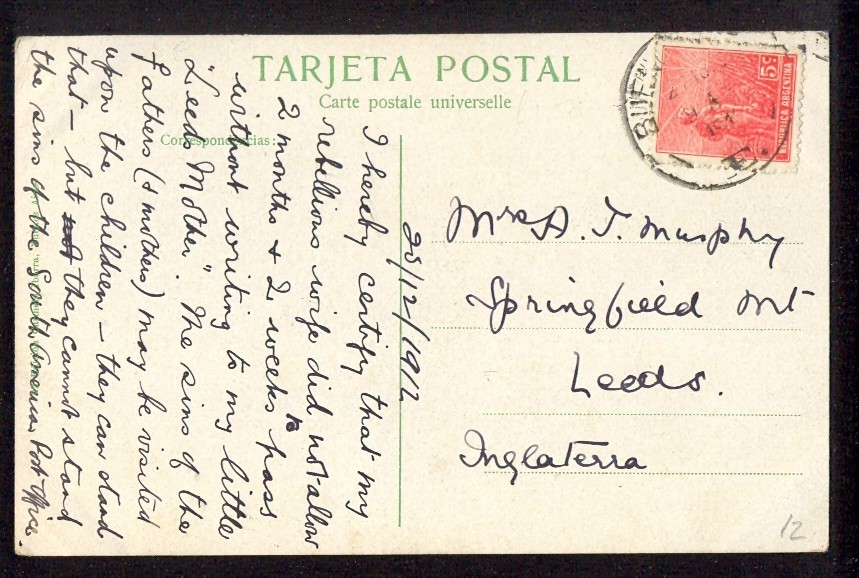 TARJETA POSTAL
Carte postale universelle
Correspondencias:
5c
REPUBLICA ARGENTINA
BUEN
25/12/1912
I hereby certify that my
rebellious wife did not allow
2 months & 2 weeks to pass
without writing to my little
"Leeds Mother". The sins of the
fathers (& mothers) may be visited
upon the children – they can stand
that – but not they cannot stand
the sins of the South American Post Office.
Mrs A. T. Murphy
Springfield Mt
Leeds.
Inglaterra
12